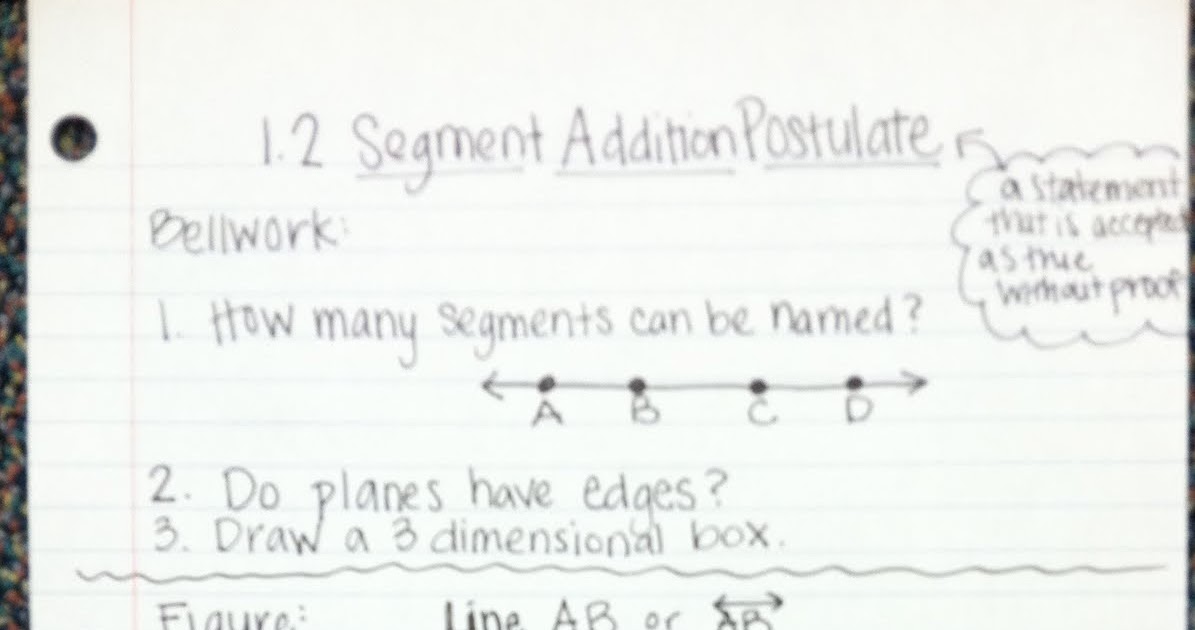 1.2 Segment Addition Postulate
a statement
that is accepted
as true
without proof
Bellwork:
1. How many segments can be named?
A B C D
2. Do planes have edges?
3. Draw a 3 dimensional box.
Figure: Line AB or AB